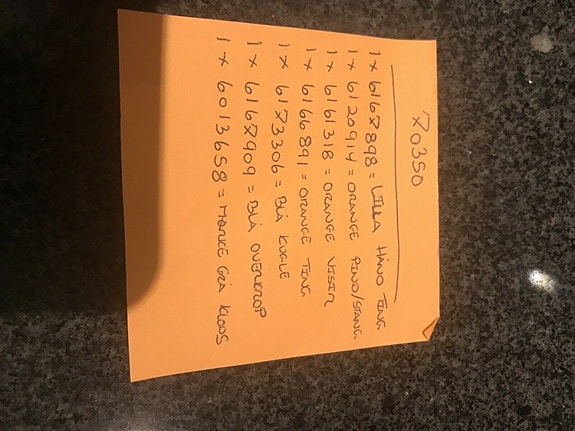 70350
1 x 6167898 = LILLA HÅND TING
1 x 6120914 = ORANGE PIND/STANG
1 x 6161318 = ORANGE VISIR
1 x 6166891 = ORANGE TING
1 x 6173306 = BLÅ KUGLE
1 x 6167909 = BLÅ OVERKROP
1 x 6013658 = MØRKE GRÅ KLODS